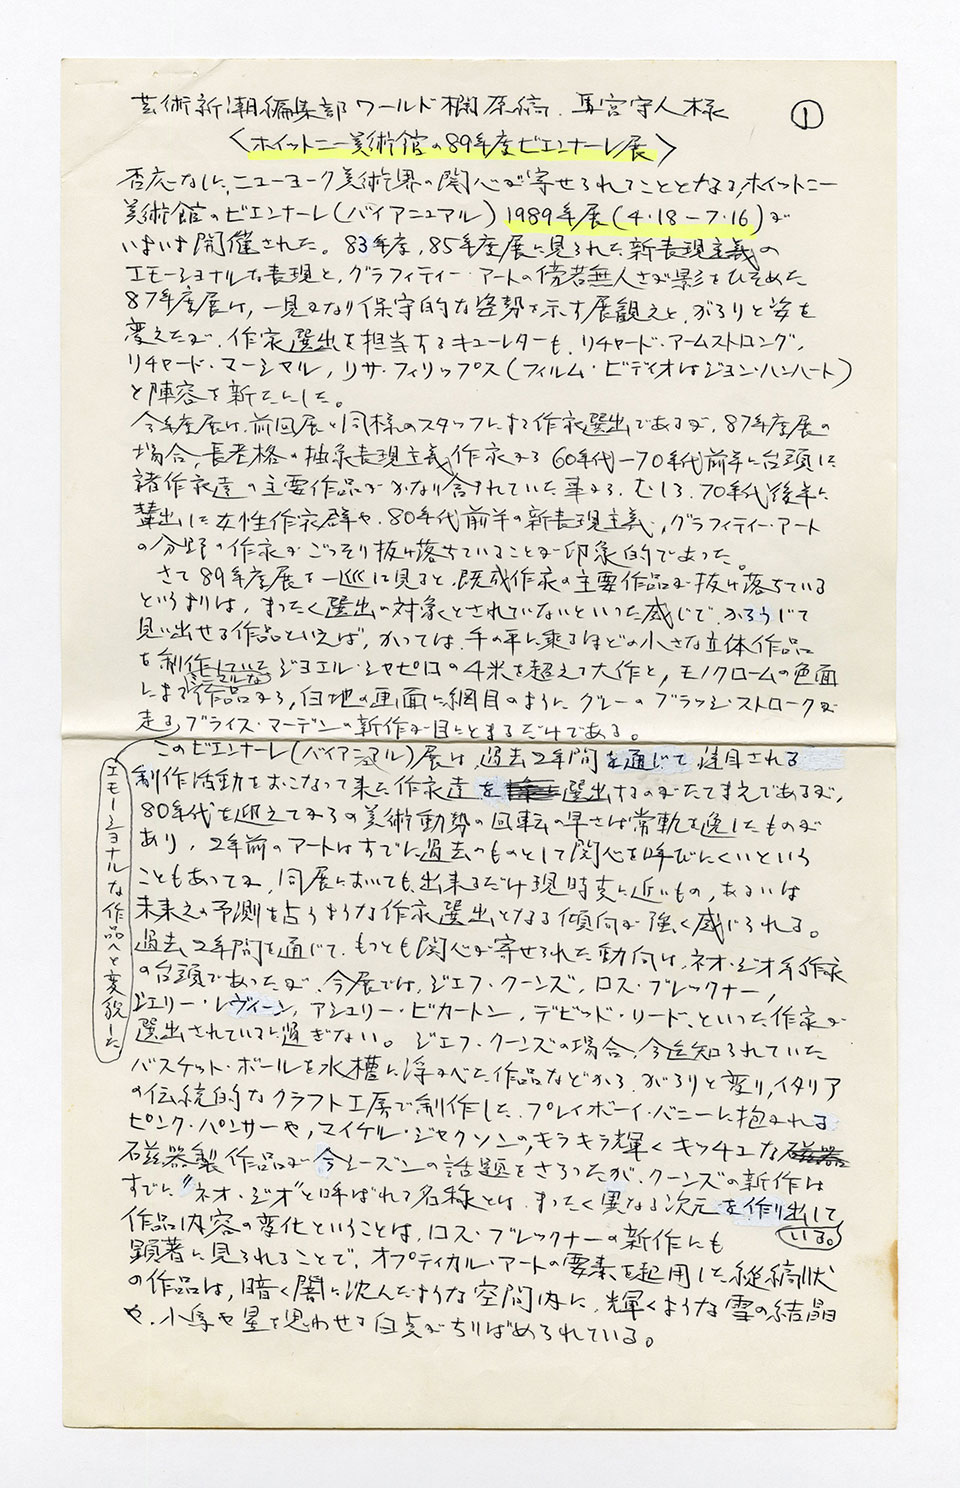 芸術新潮編集部ワールド欄原稿. 馬宮守人様 ①
〈ホイットニー美術館の89年度ビエンナーレ展〉
否応なしに、ニューヨーク美術界の関心が寄せられることとなる、ホイットニー
美術館のビエンナーレ(バイアニュアル) 1989年展(4・18−7・16)が
いよいよ開催された。83年度, 85年度展に見られた新表現主義の
エモーショナルな表現と, グラフィティー・アートの傍若無人さが影をひそめた
87年度展は, 一見かなり保守的な姿勢を示す展観えと, がらりと姿を
変えたが. 作家選出を担当するキューレターも, リチャード・アームストロング,
リチャード・マーシャル, リサ・フィリップス(フィルム・ビディオはジョン・ハンハート)
と陣容を新たにした。
今年度展は, 前回展と同様のスタッフによる作家選出であるが, 87年度展の
場合, 長老格の抽象表現主義作家から60年代−70年代前半に台頭した
諸作家達の主要作品がかなり含まれていた事から, むしろ, 70年代後半に
輩出した女性作家群や, 80年代前半の新表現主義, グラフィティー・アート
の分野の作家がごっそり抜け落ちていることが印象的であった。
さて89年度展を一巡して見ると, 既成作家の主要作品が抜け落ちている
というよりは, まったく選出の対象とされていないといった感じで, かろうじて
見い出せる作品といえば, かつては, 手の平に乗るほどの小さな立体作品
を制作していたジョエル・シャピロの4米を超えて大作と, モノクロームの色面
による作品から, 白地の画面に網目のようにグレーのブラッシ・ストロークが
走る, ブライス・マーデンの新作が目にとまるだけである。
エモーショナルな作品へと変貌した
このビエンナーレ(バイアニュアル)展は, 過去2年間を通じて注目される
制作活動をおこなって来た作家達を選出するのがたてまえであるが,
80年代を迎えてからの美術動勢の回転の早さは常軌を逸したものが
あり, 2年前のアートはすでに過去のものとして関心を呼びにくいという
こともあってか, 同展においても, 出来るだけ現時点に近いもの, あるいは
未来えの予測を占うような作家選出となる傾向が強く感じられる。
過去2年間を通じて, もっとも関心が寄せられた動向は, ネオ・ジオ系作家
の台頭であったが, 今展では, ジェフ・クーンズ, ロス・ブレックナー,
ジェリー・レヴィーン, アシュリー・ビカートン, デビッド・リード, といった作家が
選出されているに過ぎない。ジェフ・クーンズの場合, 今迄知られていた
バスケット・ボールを水槽に浮かべた作品などから, がらりと変り, イタリア
の伝統的なクラフト工房で制作した, プレイボーイ・バニーに抱かれる
ピンク・パンサーや, マイケル・ジャクソンの, キラキラ輝くキッチュな
磁器製作品が今シーズンの話題をさらったが, クーンズの新作は
すでに"ネオ・ジオ"と呼ばれて名称とは, まったく異なる次元を作り出して
いる。
作品内容の変化ということは, ロス・ブレックナーの新作にも
顕著に見られることで, オプティカル・アートの要素を起用した縦縞状
の作品は, 暗く闇に沈んだような空間内に, 輝くような雪の結晶
や, 小鳥や星を思わせる白点がちりばめられている。